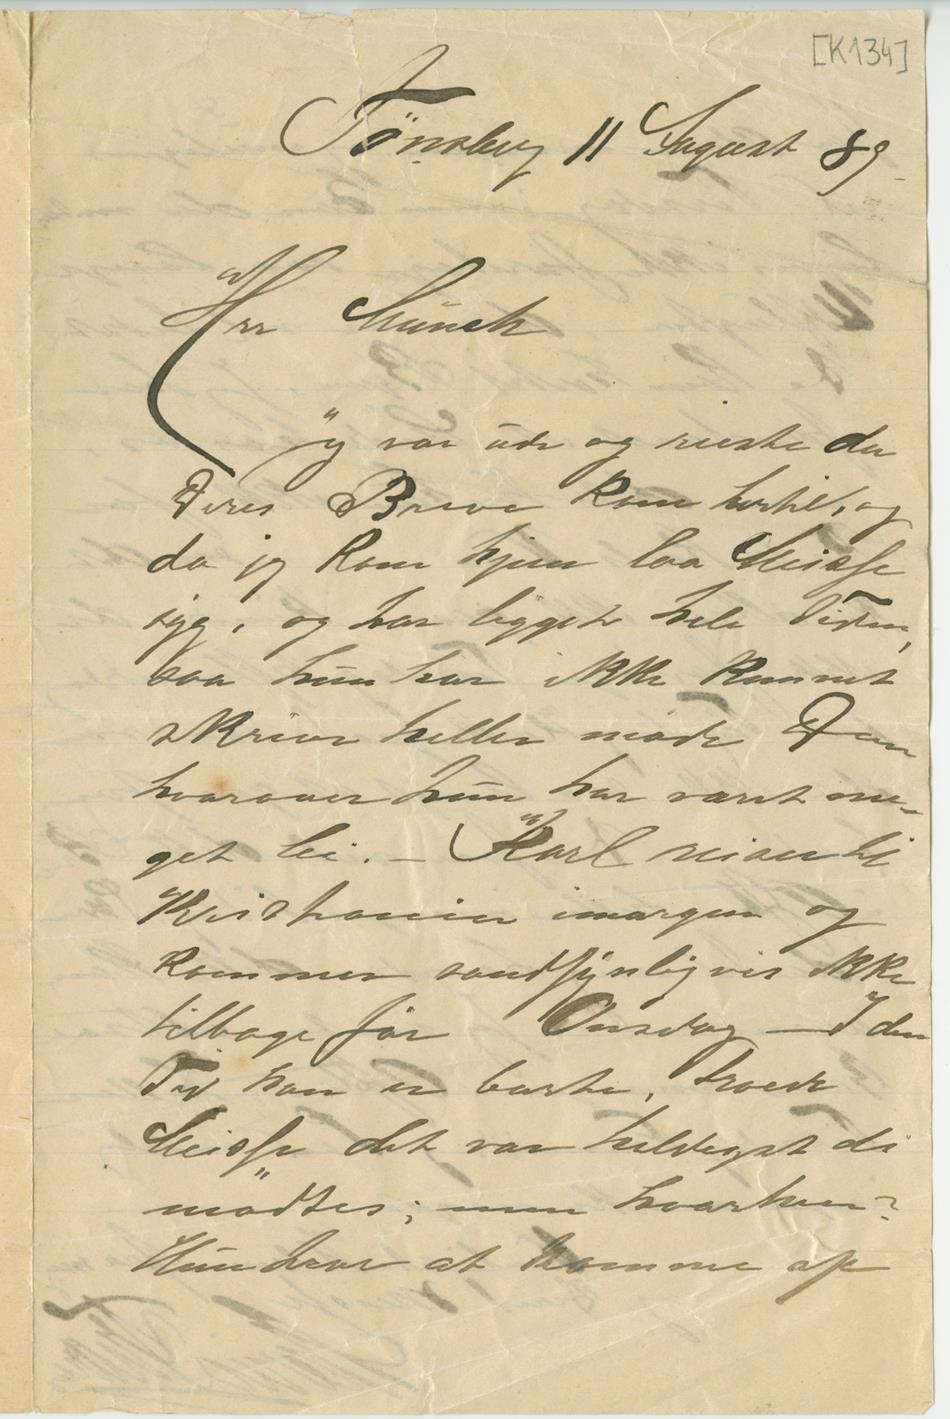 [K134]
Tönsberg 11 August 89
Hrr Münch
Jeg var ude og reiste da
Deres Breve kom hertil, og
da jeg kom hjem laa Meisse
syg, og har ligget hele Tiden,
saa hun har ikke kunnet
skrive heller møde Dem
hvorover hun har været me-
get lei. — Karl reiser til
Kristiania imorgen og
kommer sandsynligvis ikke
tilbage før Onsdag — I den
Tid han er borte, troede
Meisse det var heldigst di
mødtes; men hvorhen?
Hun tror at komme op